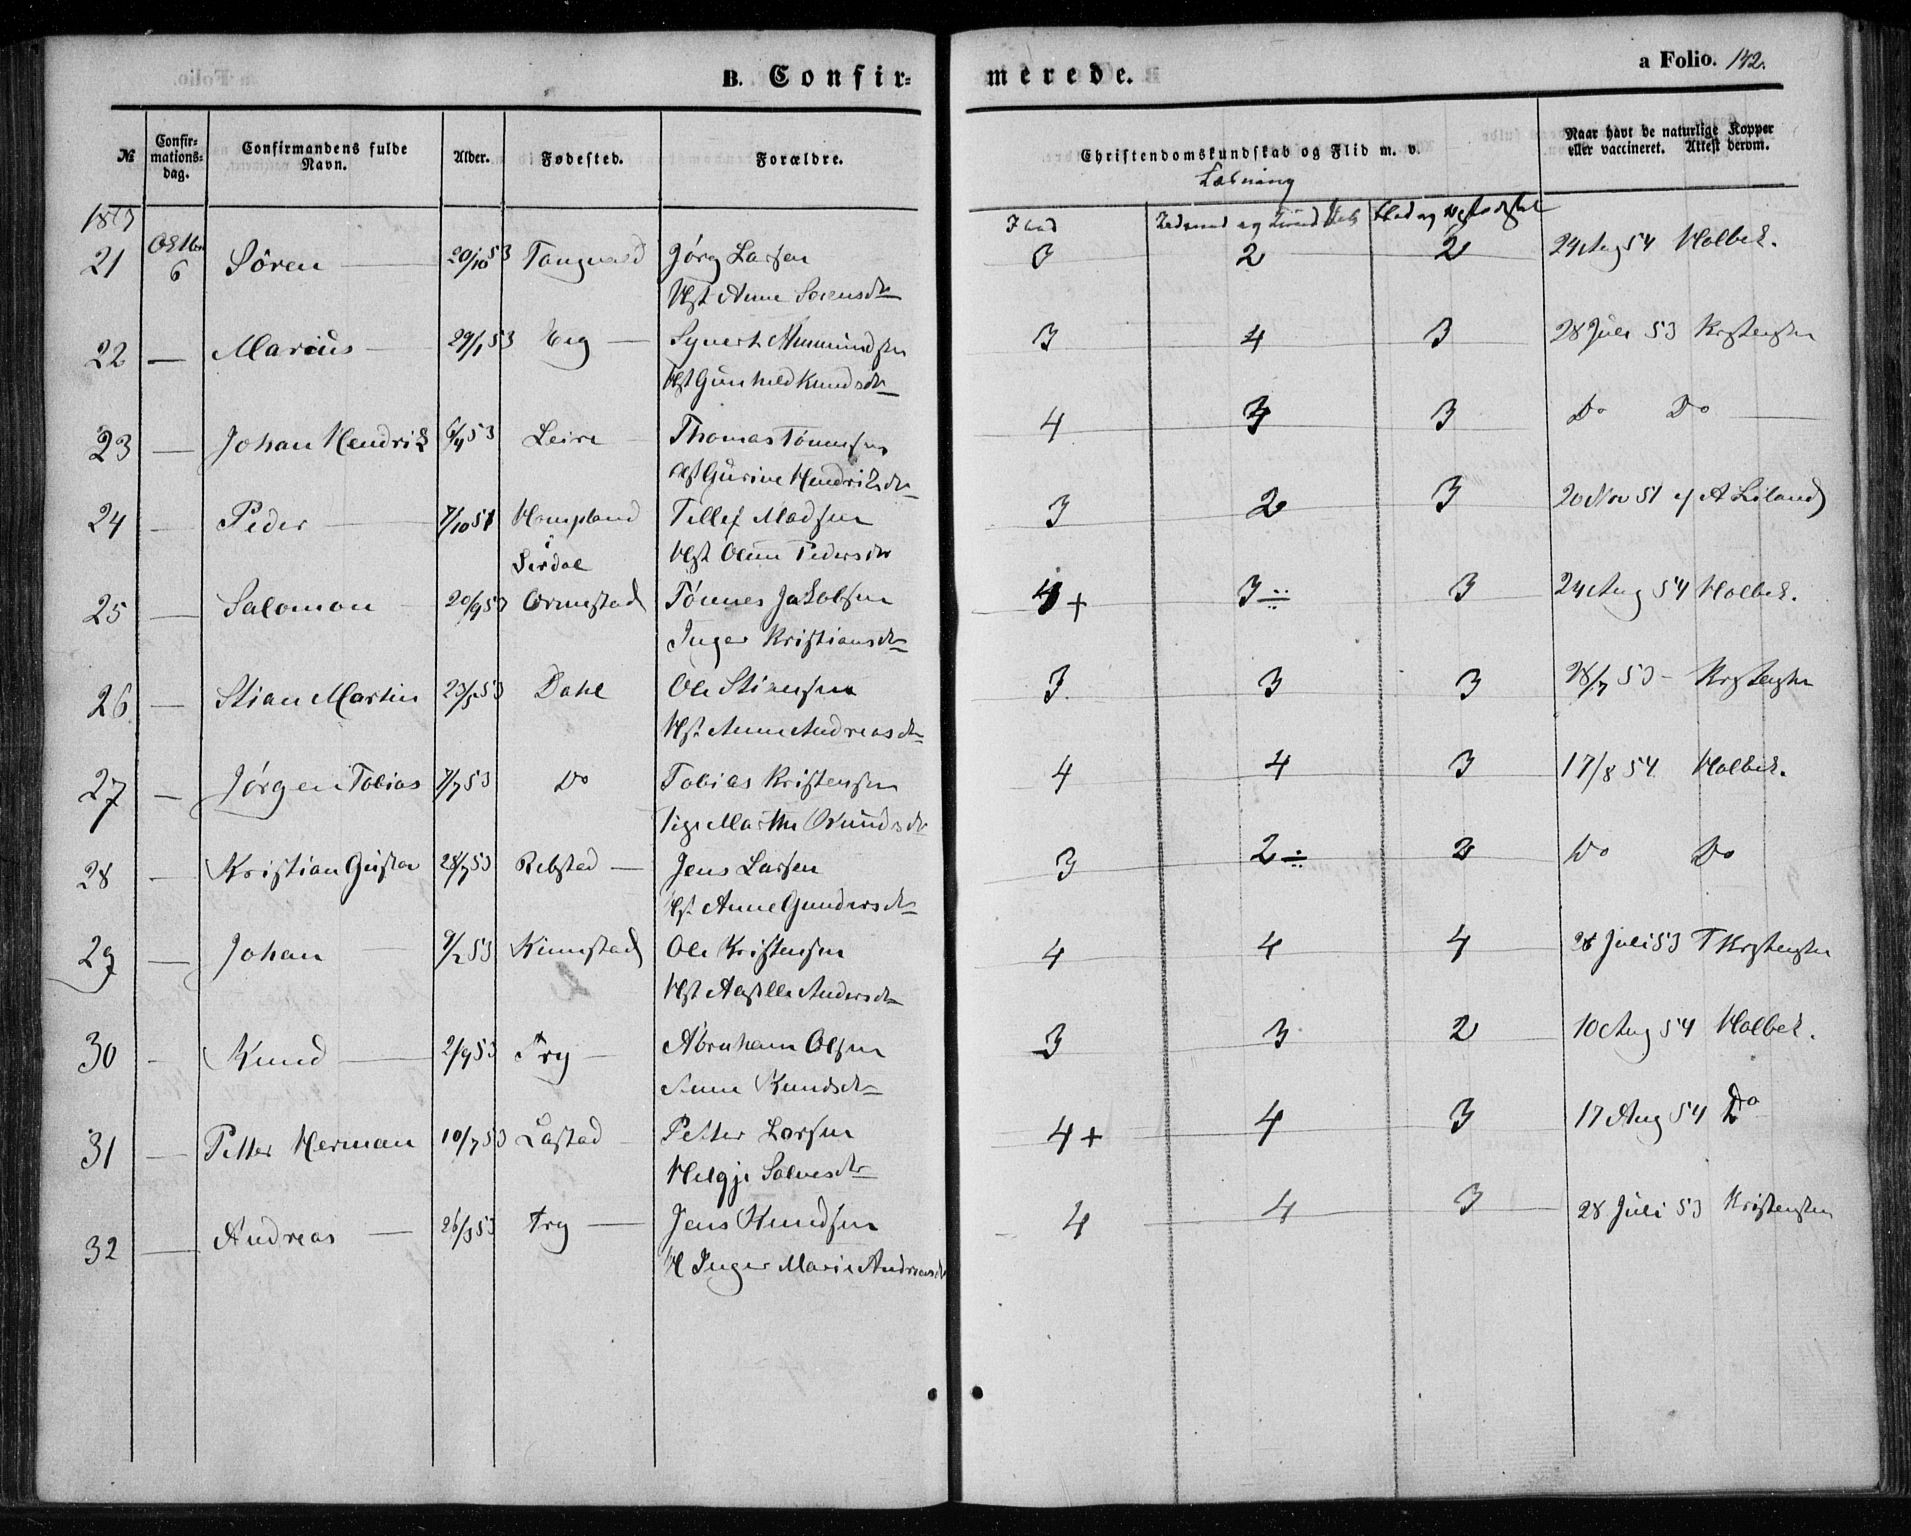 B. Confir-
merede.
a Folio. 142.
№
Confir-
mations-
dag.
Confirmandens fulde
Navn.
Alder.
Fødested.
Forældre.
Christendomskundskab og Flid m. v.
Læsning
Naar havt de naturlige Kopper
eller vaccineret. Attest derom.
Flid
21 6 Sören 20/10 53 Jörg Larsen 3 2 2 24 Aug 54 Holbek.
Hst Anne Sorensdr
22 — Marius 29/1 53 Eeg Syvert Ammundsen 3 4 3 28 Juli 53 Kristensen
Hst Gunhild Knudsdr
23 — Johan Hendrik 6/4 53 Leire Thomas Tønnesen 4 3 3 Do Do
Hst Gurine Hendriksdr
24 — Peder 7/10 51 Hompland Tellef Madsen 3 2 3 20 Nov 51 af A Liland
i
Sirdal Hst Olene Pedersdr
25 — Salomon 20/9 53 Ormstad Tönnes Jakobsen 4+ 3 ÷ 3 24 Aug 54 Holbek.
Inger Kristiansdr
26 — Stian Martin 23/5 53 Dahl Ole Stiansen 3 3 3 28/7 53 Kristensen
Hst Anne Andreasdr
27 — Jörgen Tobias 7/7 53 Do Tobias Kristensen 4 4 3 17/8 54 Holbek.
Pige Marthe
28 — Kristian Gustav 28/7 53 Rebstad Jens Larsen 3 2 ÷ 3 Do Do
Hst Anne Gundersdr
29 — Johan 9/2 53 Ole Kristensen 4 4 4 28 Juli 53 T Kristensen
Hst Andersdr
30 — Knud 2/9 53 Try Abraham Olsen 3 3 2 10 Aug 54 Holbek.
Anne Knudsdr
31 — Petter Herman 10/7 53 Lastad Petter Larsen 4+ 4 3 17 Aug 54 Do
Helgje Salvesdr
32 — Andreas 26/3 53 Try Jens Knudsen 4 4 3 28 Juli 53 Kristensen
H Inger Marie Andreasdr